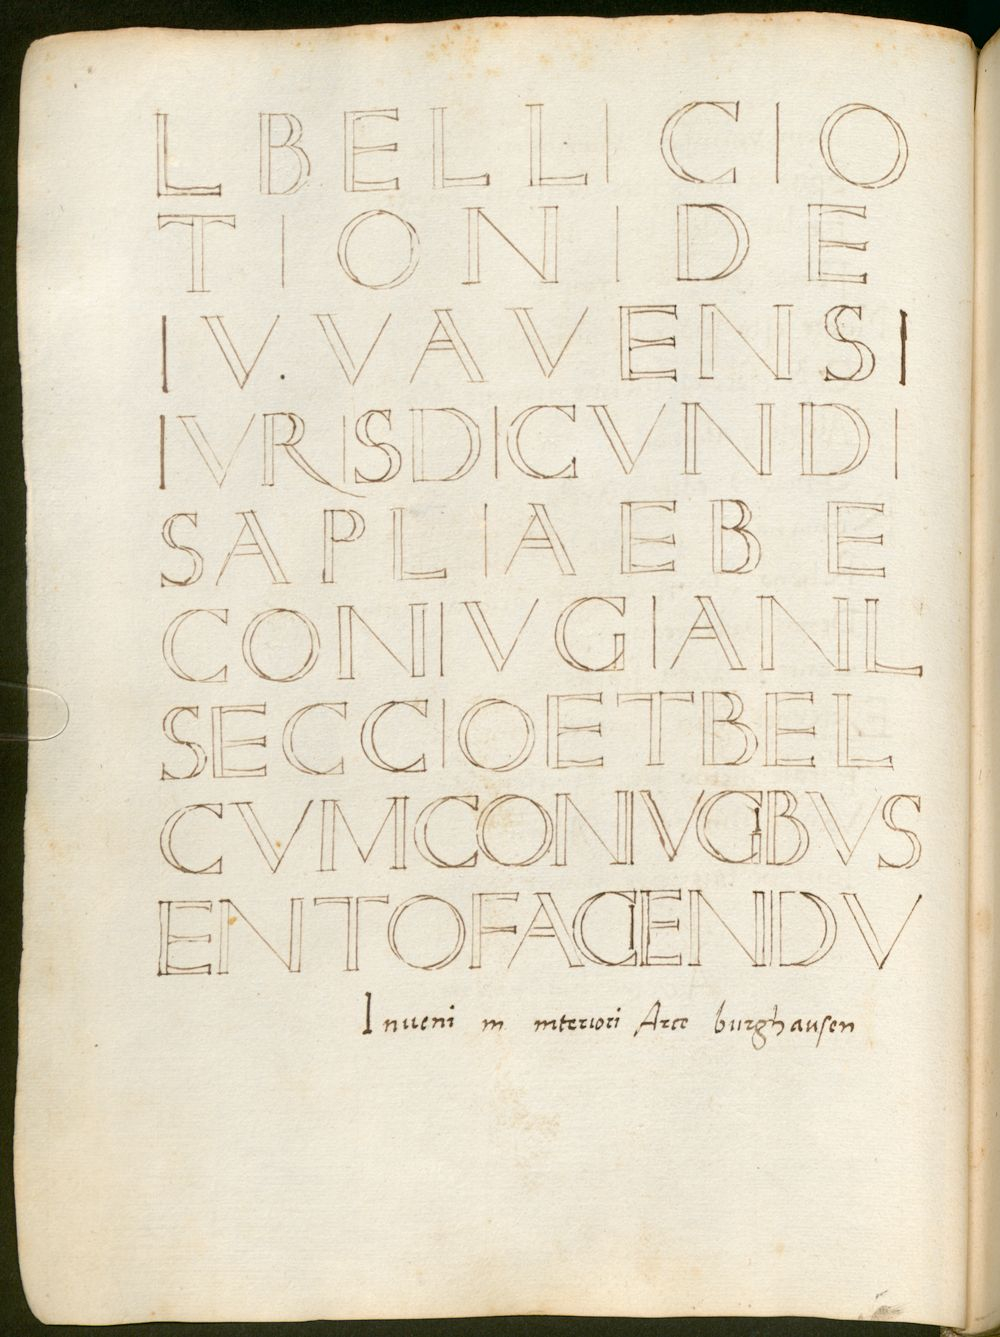 L BELLICIO
TIONI DE
IV.VAVENSI
IVRISDICVNDI
SAPLIAEBE
CONIVGIANL
SECCIOETBEL
CVMCONIVGIBVS
ENTOFACIENDV
Inveni in interiori Arce burghausen